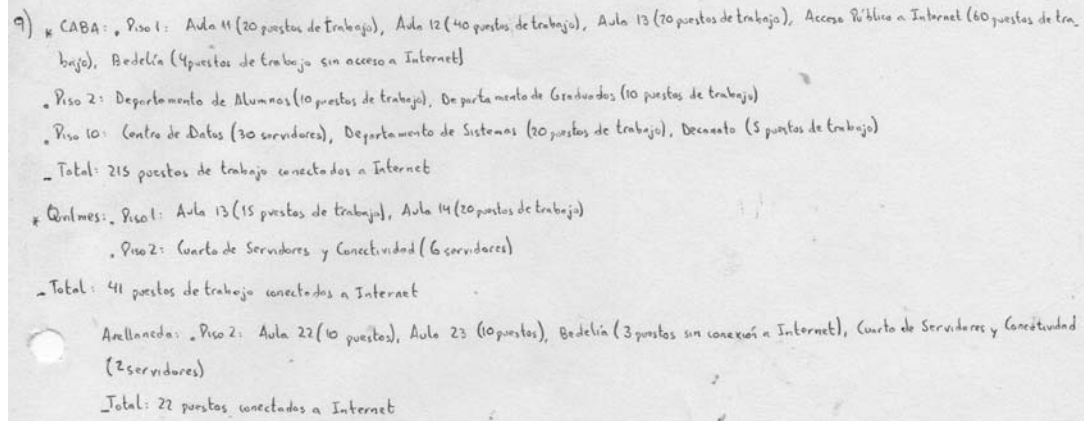 9) * CABA: . Piso 1: Aula 11 (20 puestos de trabajo), Aula 12 (40 puestos de trabajo), Aula 13 (20 puestos de trabajo), Acceso Público a Internet (60 puestos de tra_
bajo), Bedelía (4 puestos de trabajo sin acceso a Internet)
. Piso 2: Departamento de Alumnos (10 puestos de trabajo), Departamento de Graduados (10 puestos de trabajo)
. Piso 10: Centro de Datos (30 servidores), Departamento de Sistemas (20 puestos de trabajo), Decanato (5 puestos de trabajo)
_ Total: 215 puestos de trabajo conectados a Internet
* Quilmes: . Piso 1: Aula 13 (15 puestos de trabajo), Aula 14 (20 puestos de trabajo)
. Piso 2: Cuarto de Servidores y Conectividad (6 servidores)
_ Total: 41 puestos de trabajo conectados a Internet
Avellaneda: . Piso 2: Aula 22 (10 puestos), Aula 23 (10 puestos), Bedelía (3 puestos sin conexión a Internet), Cuarto de Servidores y Conectividad
(2 servidores)
_ Total: 22 puestos conectados a Internet